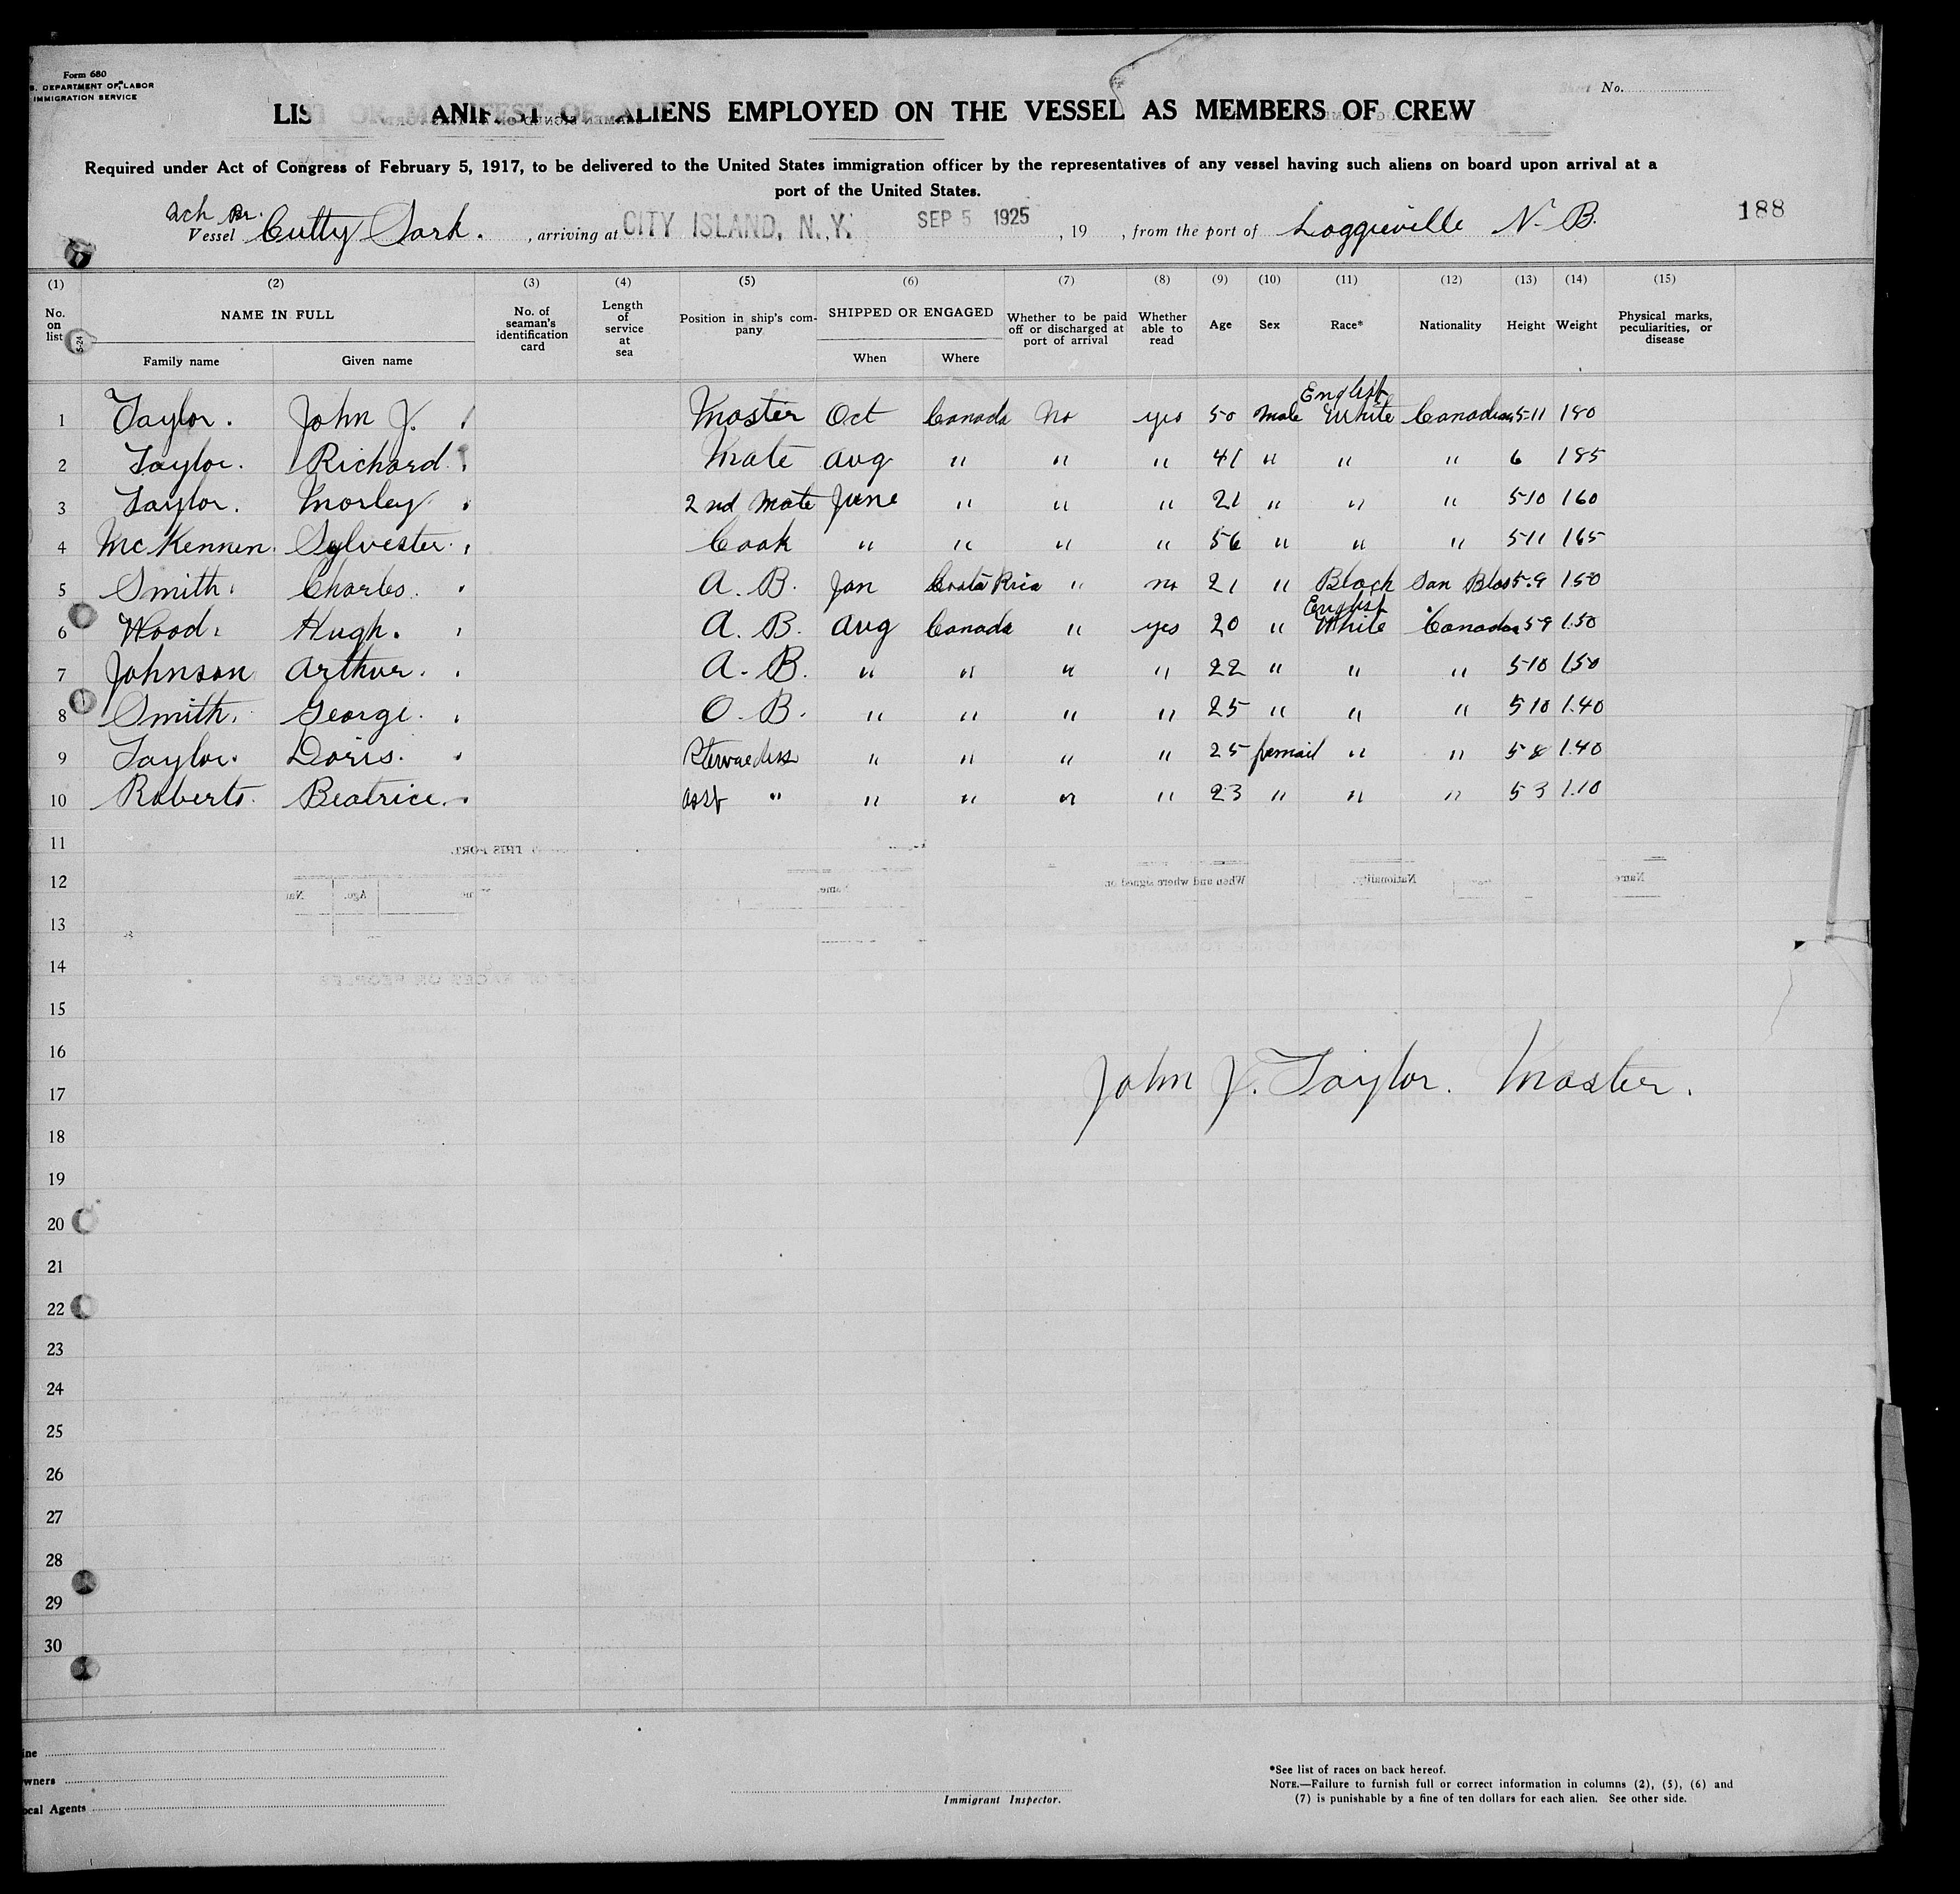 Form 680
S. DEPARTMENT OF LABOR
IMMIGRATION SERVICE
Sheet No.
LIST OR MANIFEST OF ALIENS EMPLOYED ON THE VESSEL AS MEMBERS OF CREW
Required under Act of Congress of February 5, 1917, to be delivered to the United States immigration officer by the representatives of any vessel having such aliens on board upon arrival at a
port of the United States.
Sch Br.
Vessel Cutty Sark. , arriving at CITY ISLAND, N.Y. SEP 5 1925 , 19 , from the port of Loggieville N. B. 188
(1) (2) (3) (4) (5) (6) (7) (8) (9) (10) (11) (12) (13) (14) (15)
No. on list NAME IN FULL Family name Given name No. of seaman's identification card Length of service at sea Position in ship's company SHIPPED OR ENGAGED When Where Whether to be paid off or discharged at port of arrival Whether able to read Age Sex Race* Nationality Height Weight Physical marks, peculiarities, or disease
English
1 Taylor. John J. Master Oct Canada No yes 50 male White Canadian 5-11 180
2 Taylor. Richard. Mate Aug " " " 41 " " " 6 185
3 Taylor. Morley 2nd Mate June " " " 21 " " " 5-10 160
4 McKennen. Sylvester. Cook " " " " 56 " " " 5-11 165
5 Smith. Charles. A. B. Jan Costa Rica " no 21 " Black San Blas 5.9 150
English
6 Wood. Hugh. A. B. Aug Canada " yes 20 " White Canada 5 9 1.50
7 Johnson Arthur. A. B. " " " " 22 " " " 5-10 150
8 Smith. George. O. B. " " " " 25 " " " 5 10 1.40
9 Taylor. Doris. Stewardess " " " " 25 femail " " 5 8 1.40
10 Roberts. Beatrice. asst " " " " " 23 " " " 5 3 1.10
11
12
13
14
15
16
John J. Taylor. Master.
17
18
19
20
21
22
23
24
25
26
27
28
29
30
ine
wners
ocal Agents
Immigrant Inspector.
*See list of races on back hereof.
NOTE.—Failure to furnish full or correct information in columns (2), (5), (6) and
(7) is punishable by a fine of ten dollars for each alien. See other side.